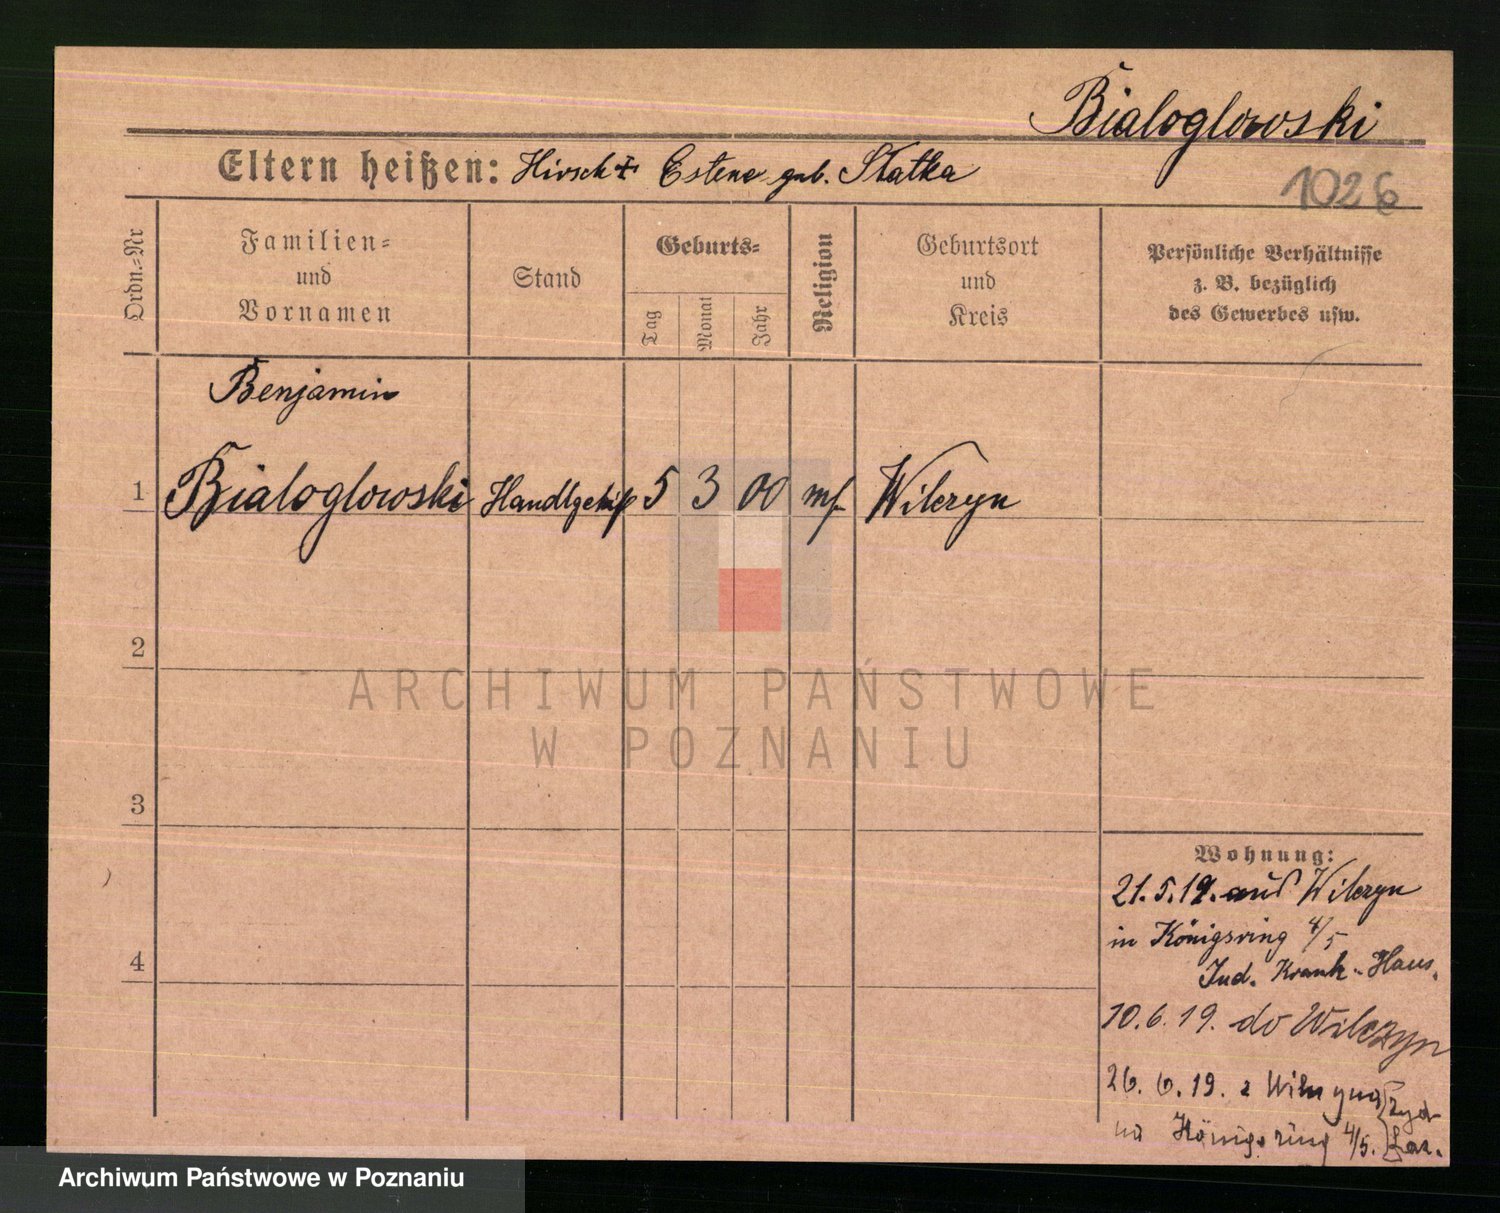 Bialoglowski
Eltern heißen: Hirsch + Estene geb. Statka
1026
Ordn.=Nr
Familien=
und
Vornamen
Stand
Geburts=
Tag
Monat
Jahr
Religion
Geburtsort
und
Kreis
Persönliche Verhältnisse
z. B. bezüglich
des Gewerbes usw.
Benjamin
1 Bialoglowski Handlgehilf 5 3 00 mos. Wilczyn
2
3
4
ARCHIWUM PAŃSTWOWE
W POZNANIU
Wohnung:
21.5.19. aus Wilczyn
in Königsring 4/5
Jud. Krank-Haus.
10.6.19. do Wilczyn
26.6.19. z Wilczyna
na Königsring 4/5.
Archiwum Państwowe w Poznaniu